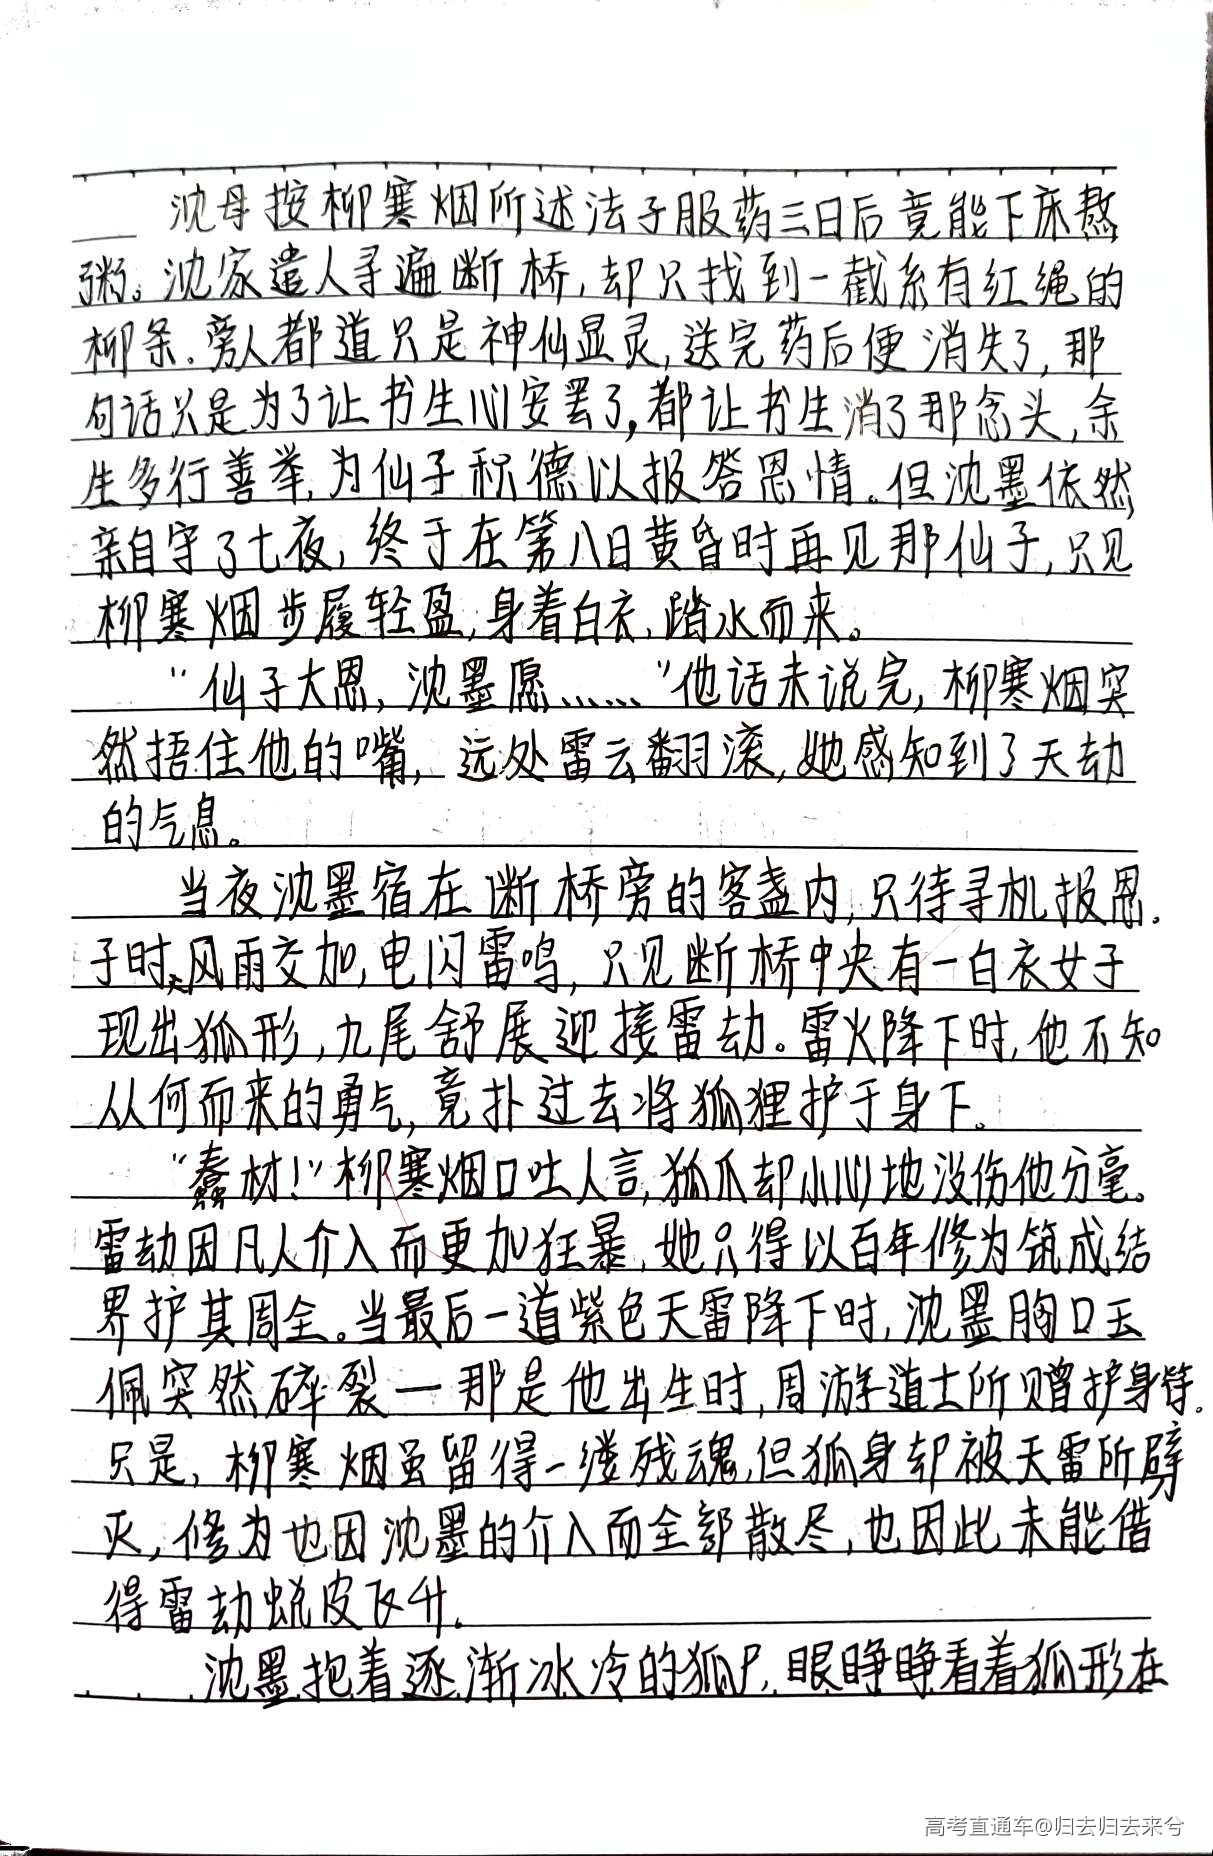 沈母按柳寒烟所述法子服药三日后竟能下床熬
粥。沈家遣人寻遍断桥，却只找到一截系有红绳的
柳条。旁人都道只是神仙显灵，送完药后便消失了，那
句话只是为了让书生心安罢了，都让书生消了那念头，余
生多行善举，为仙子积德以报答恩情。但沈墨依然，
亲自守了七夜，终于在第八日黄昏时再见那仙子，只见
柳寒烟步履轻盈，身着白衣，踏水而来。
“仙子大恩，沈墨愿……”他话未说完，柳寒烟突
然捂住他的嘴，远处雷云翻滚，她感知到了天劫
的气息。
当夜沈墨宿在断桥旁的客盏内，只待寻机报恩。
子时，风雨交加，电闪雷鸣，只见断桥中央有一白衣女子
现出狐形，九尾舒展迎接雷劫。雷火降下时，他不知
从何而来的勇气，竟扑过去将狐狸护于身下。
“蠢材！”柳寒烟口吐人言，狐爪却小心地没伤他分毫。
雷劫因凡人介入而更加狂暴，她只得以百年修为筑成结
界护其周全。当最后一道紫色天雷降下时，沈墨胸口玉
佩突然碎裂—那是他出生时，周游道士所赠护身符。
只是，柳寒烟虽留得一缕残魂，但狐身却被天雷所劈
灭，修为也因沈墨的介入而全部散尽，也因此未能借
得雷劫蜕皮飞升。
沈墨抱着逐渐冰冷的狐尸，眼睁睁看着狐形在
高考直通车@归去归去来兮